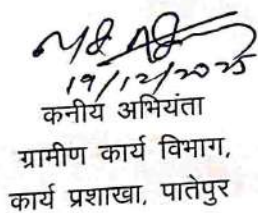 19/12/2025
कनीय अभियंता
ग्रामीण कार्य विभाग,
कार्य प्रशाखा, पातेपुर